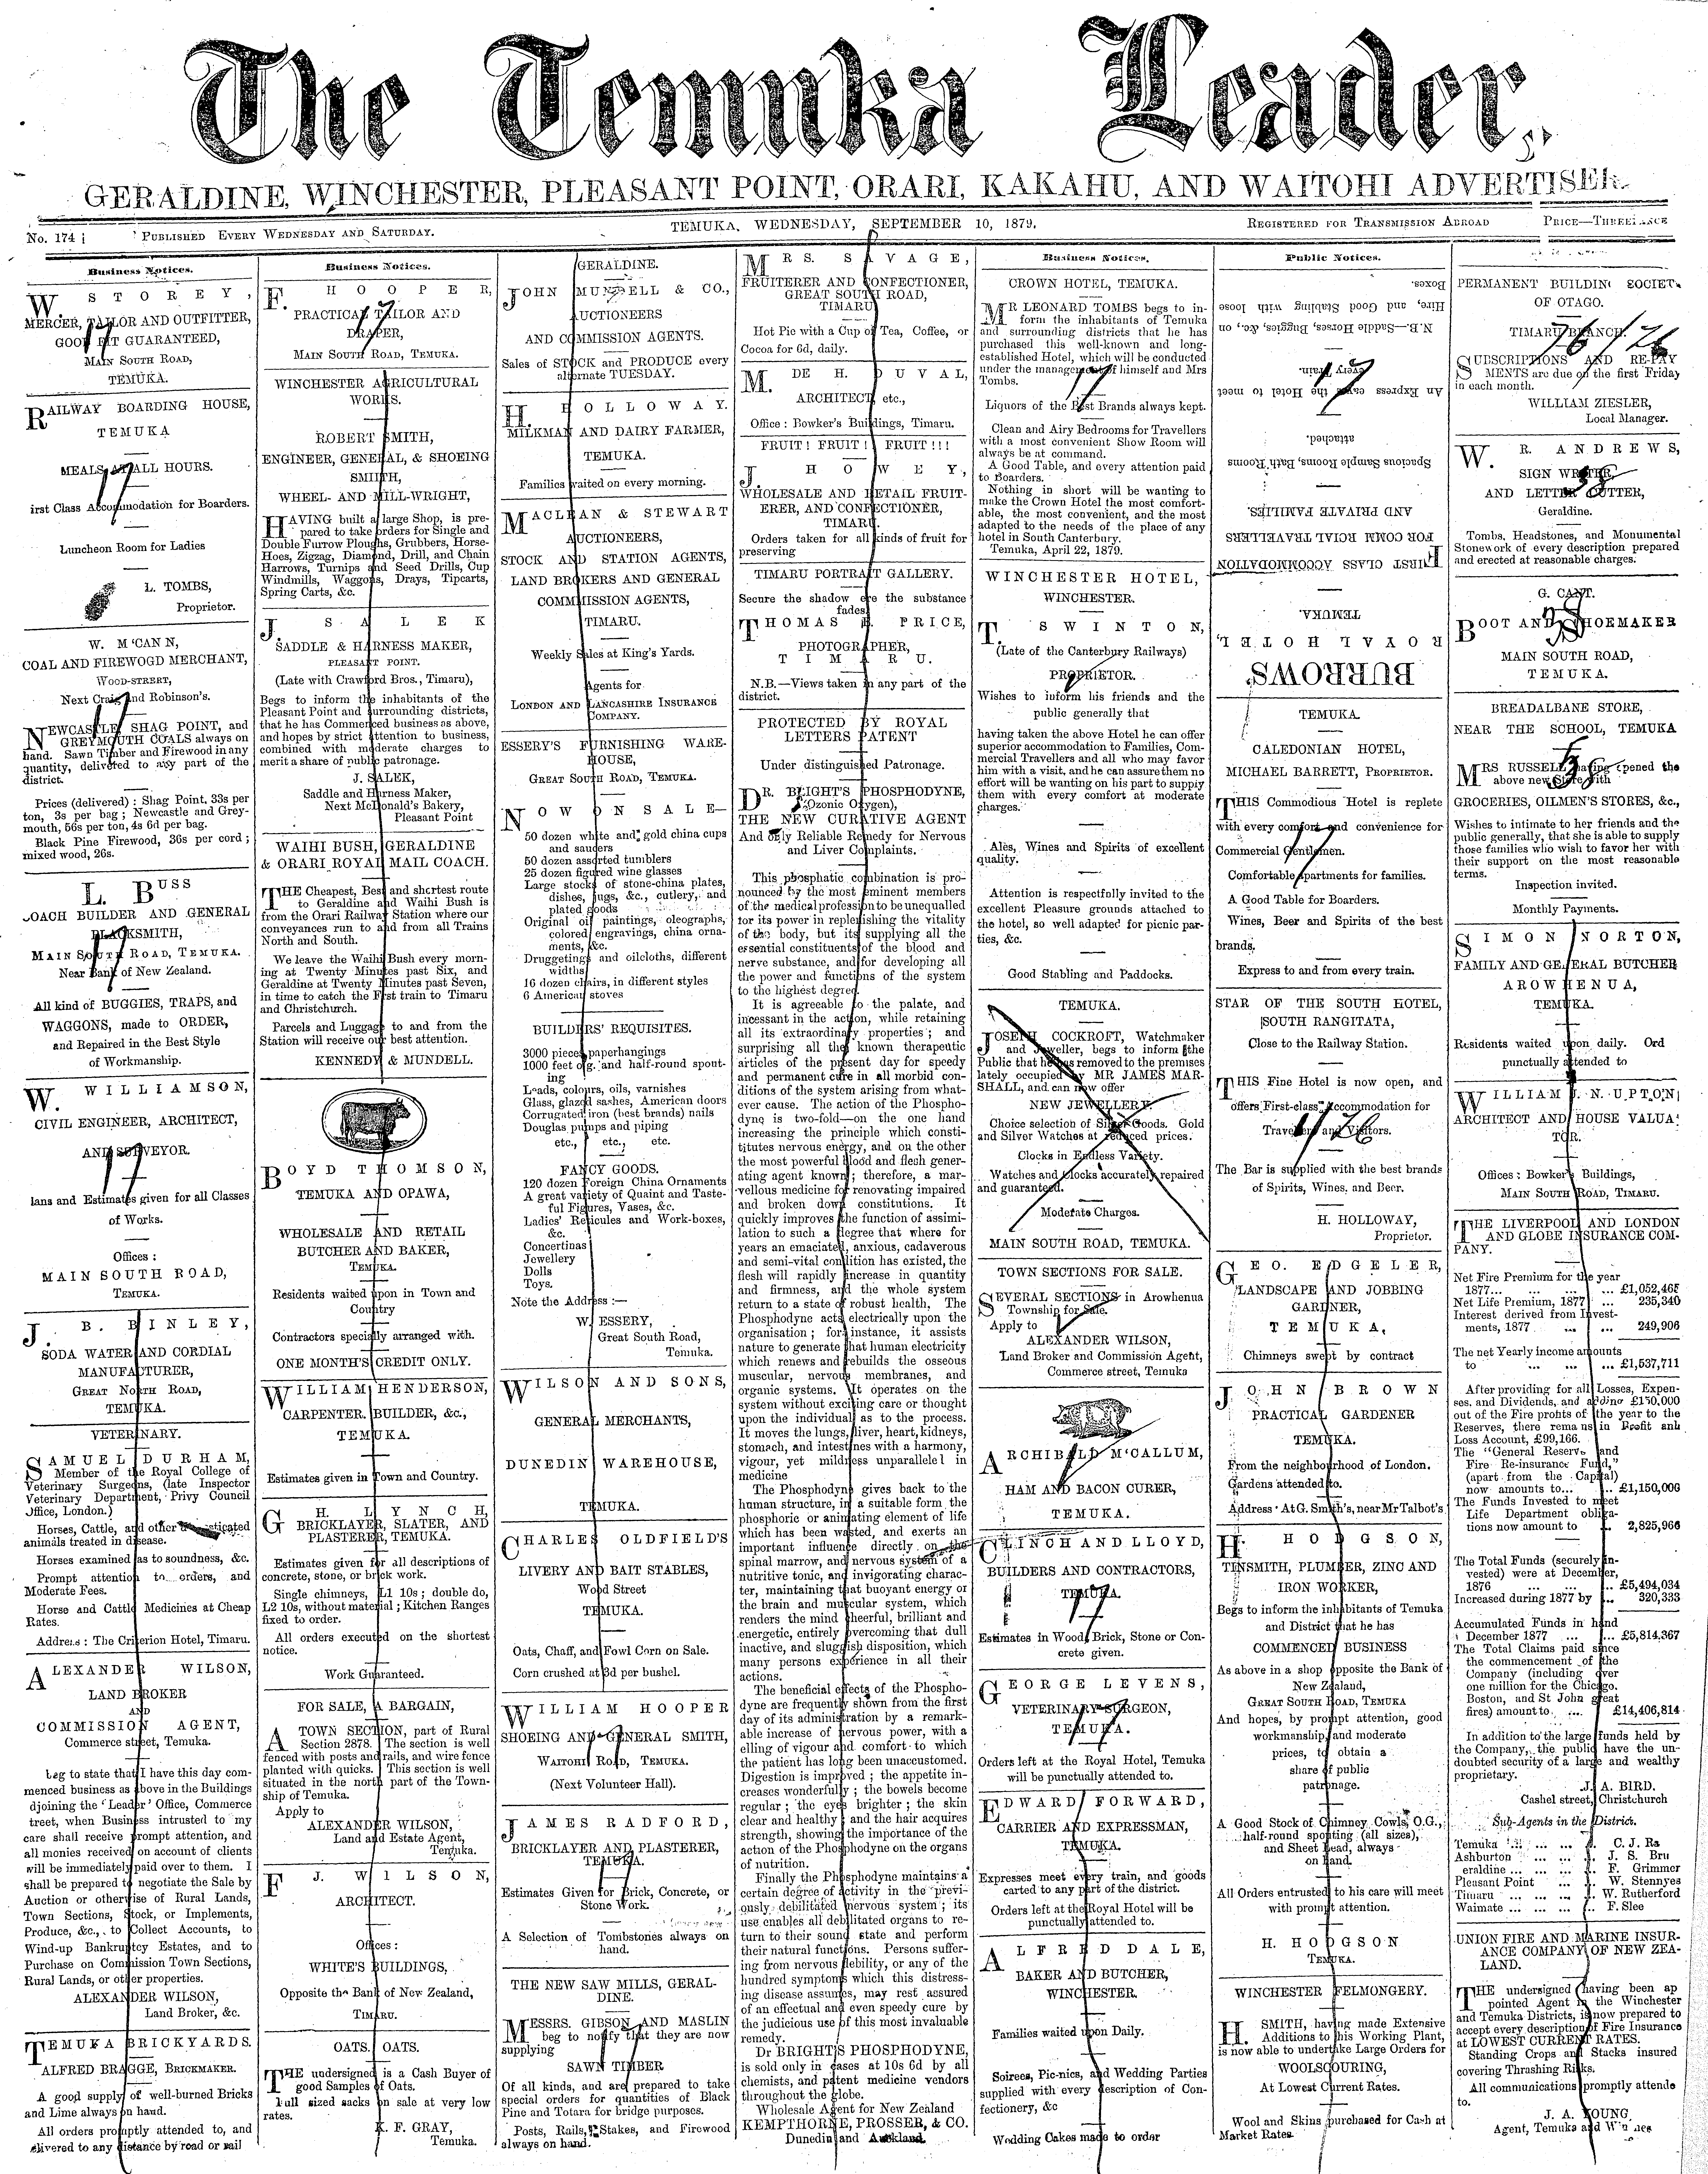 The Temuka Leader,
GERALDINE, WINCHESTER, PLEASANT POINT, ORARI, KAKAHU, AND WAITOHI ADVERTISER.
No. 174
PUBLISHED EVERY WEDNESDAY AND SATURDAY.
TEMUKA, WEDNESDAY, SEPTEMBER 10, 1879.
REGISTERED FOR TRANSMISSION ABROAD
Business Notices.
W. STOREY,
MERCER, TAILOR AND OUTFITTER,
GOOD FIT GUARANTEED,
MAIN SOUTH ROAD,
TEMUKA.
17
RAILWAY BOARDING HOUSE,
TEMUKA
MEALS AT ALL HOURS.
irst Class Accommodation for Boarders.
Luncheon Room for Ladies
L. TOMBS,
Proprietor.
17
W. M'CANN,
COAL AND FIREWOGD MERCHANT,
WOOD-STREET,
Next Craig and Robinson's.
NEWCASTLE, SHAG POINT, and
GREYMOUTH COALS always on
hand. Sawn Timber and Firewood in any
quantity, delivered to any part of the
district.
Prices (delivered) : Shag Point, 33s per
ton, 3s per bag ; Newcastle and Grey-
mouth, 56s per ton, 4s 6d per bag.
Black Pine Firewood, 36s per cord ;
mixed wood, 26s.
17
L. BUSS
OACH BUILDER AND GENERAL
BLACKSMITH,
MAIN SOUTH ROAD, TEMUKA.
Near Bank of New Zealand.
All kind of BUGGIES, TRAPS, and
WAGGONS, made to ORDER,
and Repaired in the Best Style
of Workmanship.
17
W. WILLIAMSON,
CIVIL ENGINEER, ARCHITECT,
AND SURVEYOR.
lans and Estimates given for all Classes
of Works.
Offices :
MAIN SOUTH ROAD,
TEMUKA.
17
J. B. BINLEY,
SODA WATER AND CORDIAL
MANUFACTURER,
GREAT NORTH ROAD,
TEMUKA.
VETERINARY.
SAMUEL DURHAM,
Member of the Royal College of
Veterinary Surgeons, (late Inspector
Veterinary Department, Privy Council
Office, London.)
Horses, Cattle, and other
animals treated in disease.
Horses examined as to soundness, &c.
Prompt attention to orders, and
Moderate Fees.
Horse and Cattle Medicines at Cheap
Rates.
Address : The Criterion Hotel, Timaru.
ALEXANDER WILSON,
LAND BROKER
AND
COMMISSION AGENT,
Commerce street, Temuka.
beg to state that I have this day com-
menced business as above in the Buildings
djoining the 'Leader' Office, Commerce
treet, when Business intrusted to my
care shall receive prompt attention, and
all monies received on account of clients
will be immediately paid over to them. I
shall be prepared to negotiate the Sale by
Auction or otherwise of Rural Lands,
Town Sections, Stock, or Implements,
Produce, &c., to Collect Accounts, to
Wind-up Bankruptcy Estates, and to
Purchase on Commission Town Sections,
Rural Lands, or other properties.
ALEXANDER WILSON,
Land Broker, &c.
TEMUKA BRICKYARDS.
ALFRED BRAGGE, BRICKMAKER.
A good supply of well-burned Bricks
and Lime always on hand.
All orders promptly attended to, and
delivered to any distance by road or rail
Business Notices.
F. HOOPER,
PRACTICAL TAILOR AND
DRAPER,
MAIN SOUTH ROAD, TEMUKA.
17
WINCHESTER AGRICULTURAL
WORKS.
ROBERT SMITH,
ENGINEER, GENERAL, & SHOEING
SMITH,
WHEEL- AND MILL-WRIGHT,
HAVING built a large Shop, is pre-
pared to take orders for Single and
Double Furrow Ploughs, Grubbers, Horse-
Hoes, Zigzag, Diamond, Drill, and Chain
Harrows, Turnips and Seed Drills, Cup
Windmills, Waggons, Drays, Tipcarts,
Spring Carts, &c.
J. SALEK
SADDLE & HARNESS MAKER,
PLEASANT POINT.
(Late with Crawford Bros., Timaru),
Begs to inform the inhabitants of the
Pleasant Point and surrounding districts,
that he has Commenced business as above,
and hopes by strict attention to business,
combined with moderate charges to
merit a share of public patronage.
J. SALEK,
Saddle and Harness Maker,
Next McDonald's Bakery,
Pleasant Point
WAIHI BUSH, GERALDINE
& ORARI ROYAL MAIL COACH.
THE Cheapest, Best and shortest route
to Geraldine and Waihi Bush is
from the Orari Railway Station where our
conveyances run to and from all Trains
North and South.
We leave the Waihi Bush every morn-
ing at Twenty Minutes past Six, and
Geraldine at Twenty Minutes past Seven,
in time to catch the First train to Timaru
and Christchurch.
Parcels and Luggage to and from the
Station will receive our best attention.
KENNEDY & MUNDELL.
BOYD THOMSON,
TEMUKA AND OPAWA,
WHOLESALE AND RETAIL
BUTCHER AND BAKER,
TEMUKA.
Residents waited upon in Town and
Country
Contractors specially arranged with.
ONE MONTH'S CREDIT ONLY.
WILLIAM HENDERSON,
CARPENTER. BUILDER, &c.,
TEMUKA.
Estimates given in Town and Country.
G H. LYNCH,
BRICKLAYER, SLATER, AND
PLASTERER, TEMUKA.
Estimates given for all descriptions of
concrete, stone, or brick work.
Single chimneys, L1 10s ; double do,
L2 10s, without material ; Kitchen Ranges
fixed to order.
All orders executed on the shortest
notice.
Work Guaranteed.
FOR SALE, A BARGAIN,
A TOWN SECTION, part of Rural
Section 2878. The section is well
fenced with posts and rails, and wire fence
planted with quicks. This section is well
situated in the north part of the Town-
ship of Temuka.
Apply to
ALEXANDER WILSON,
Land and Estate Agent,
Temuka.
F J. WILSON,
ARCHITECT.
Offices :
WHITE'S BUILDINGS,
Opposite the Bank of New Zealand,
TIMARU.
OATS. OATS.
THE undersigned is a Cash Buyer of
good Samples of Oats.
Full sized sacks on sale at very low
rates.
K. F. GRAY,
Temuka.
GERALDINE.
JOHN MUNDELL & CO.,
AUCTIONEERS
AND COMMISSION AGENTS.
Sales of STOCK and PRODUCE every
alternate TUESDAY.
H. HOLLOWAY.
MILKMAN AND DAIRY FARMER,
TEMUKA.
Families waited on every morning.
MACLEAN & STEWART
AUCTIONEERS,
STOCK AND STATION AGENTS,
LAND BROKERS AND GENERAL
COMMISSION AGENTS,
TIMARU.
Weekly Sales at King's Yards.
Agents for
LONDON AND LANCASHIRE INSURANCE
COMPANY.
ESSERY'S FURNISHING WARE-
HOUSE,
GREAT SOUTH ROAD, TEMUKA.
NOW ON SALE—
50 dozen white and gold china cups
and saucers
50 dozen assorted tumblers
25 dozen figured wine glasses
Large stocks of stone-china plates,
dishes, jugs, &c., cutlery, and
plated goods
Original oil paintings, oleographs,
colored engravings, china orna-
ments, &c.
Druggetings and oilcloths, different
widths
16 dozen chairs, in different styles
6 American stoves
BUILDERS' REQUISITES.
3000 pieces paperhangings
1000 feet o.g. and half-round spout-
ing
Leads, colours, oils, varnishes
Glass, glazed sashes, American doors
Corrugated iron (best brands) nails
Douglas pumps and piping
etc., etc., etc.
FANCY GOODS.
120 dozen Foreign China Ornaments
A great variety of Quaint and Taste-
ful Figures, Vases, &c.
Ladies' Reticules and Work-boxes,
&c.
Concertinas
Jewellery
Dolls
Toys.
Note the Address :—
W. ESSERY,
Great South Road,
Temuka.
WILSON AND SONS,
GENERAL MERCHANTS,
DUNEDIN WAREHOUSE,
TEMUKA.
CHARLES OLDFIELD'S
LIVERY AND BAIT STABLES,
Wood Street
TEMUKA.
Oats, Chaff, and Fowl Corn on Sale.
Corn crushed at 3d per bushel.
WILLIAM HOOPER
SHOEING AND GENERAL SMITH,
WAITOHI ROAD, TEMUKA.
(Next Volunteer Hall).
17
JAMES RADFORD,
BRICKLAYER AND PLASTERER,
TEMUKA.
Estimates Given for Brick, Concrete, or
Stone Work.
A Selection of Tombstones always on
hand.
17
THE NEW SAW MILLS, GERAL-
DINE.
MESSRS. GIBSON AND MASLIN
beg to notify that they are now
supplying
SAWN TIMBER
Of all kinds, and are prepared to take
special orders for quantities of Black
Pine and Totara for bridge purposes.
Posts, Rails, Stakes, and Firewood
always on hand.
17
MRS. SAVAGE,
FRUITERER AND CONFECTIONER,
GREAT SOUTH ROAD,
TIMARU
Hot Pie with a Cup of Tea, Coffee, or
Cocoa for 6d, daily.
M. DE H. DUVAL,
ARCHITECT, etc.,
Office : Bowker's Buildings, Timaru.
FRUIT! FRUIT! FRUIT!!!
J. HOWEY,
WHOLESALE AND RETAIL FRUIT-
ERER, AND CONFECTIONER,
TIMARU.
Orders taken for all kinds of fruit for
preserving
TIMARU PORTRAIT GALLERY.
Secure the shadow ere the substance
fades.
THOMAS E. PRICE,
PHOTOGRAPHER,
TIMARU.
N.B.—Views taken in any part of the
district.
PROTECTED BY ROYAL
LETTERS PATENT
Under distinguished Patronage.
DR. BRIGHT'S PHOSPHODYNE,
(Ozonic Oxygen),
THE NEW CURATIVE AGENT
And only Reliable Remedy for Nervous
and Liver Complaints.
This phosphatic combination is pro-
nounced by the most eminent members
of the medical profession to be unequalled
for its power in replenishing the vitality
of the body, but its supplying all the
essential constituents of the blood and
nerve substance, and for developing all
the power and functions of the system
to the highest degree.
It is agreeable to the palate, and
incessant in the action, while retaining
all its extraordinary properties ; and
surprising all the known therapeutic
articles of the present day for speedy
and permanent cure in all morbid con-
ditions of the system arising from what-
ever cause. The action of the Phospho-
dyne is two-fold—on the one hand
increasing the principle which consti-
titutes nervous energy, and on the other
the most powerful blood and flesh gener-
ating agent known ; therefore, a mar-
vellous medicine for renovating impaired
and broken down constitutions. It
quickly improves the function of assimi-
lation to such a degree that where for
years an emaciated, anxious, cadaverous
and semi-vital condition has existed, the
flesh will rapidly increase in quantity
and firmness, and the whole system
return to a state of robust health, The
Phosphodyne acts electrically upon the
organisation ; for instance, it assists
nature to generate that human electricity
which renews and rebuilds the osseous
muscular, nervous membranes, and
organic systems. It operates on the
system without exciting care or thought
upon the individual as to the process.
It moves the lungs, liver, heart, kidneys,
stomach, and intestines with a harmony,
vigour, yet mildness unparallelel in
medicine
The Phosphodyne gives back to the
human structure, in a suitable form the
phosphoric or animating element of life
which has been wasted, and exerts an
important influence directly on the
spinal marrow, and nervous system of a
nutritive tonic, and invigorating charac-
ter, maintaining that buoyant energy or
the brain and muscular system, which
renders the mind cheerful, brilliant and
energetic, entirely overcoming that dull
inactive, and sluggish disposition, which
many persons experience in all their
actions.
The beneficial effects of the Phospho-
dyne are frequently shown from the first
day of its administration by a remark-
able increase of nervous power, with a
elling of vigour and comfort to which
the patient has long been unaccustomed.
Digestion is improved ; the appetite in-
creases wonderfully ; the bowels become
regular ; the eyes brighter ; the skin
clear and healthy ; and the hair acquires
strength, showing the importance of the
action of the Phosphodyne on the organs
of nutrition.
Finally the Phosphodyne maintains a
certain degree of activity in the previ-
ously debilitated nervous system ; its
use enables all debilitated organs to re-
turn to their sound state and perform
their natural functions. Persons suffer-
ing from nervous debility, or any of the
hundred symptoms which this distress-
ing disease assumes, may rest assured
of an effectual and even speedy cure by
the judicious use of this most invaluable
remedy.
Dr BRIGHT'S PHOSPHODYNE,
is sold only in cases at 10s 6d by all
chemists, and patent medicine vendors
throughout the globe.
Wholesale Agent for New Zealand
KEMPTHORNE, PROSSER, & CO.
Dunedin and Auckland.
Business Notices.
CROWN HOTEL, TEMUKA.
MR LEONARD TOMBS begs to in-
form the inhabitants of Temuka
and surrounding districts that he has
purchased this well-known and long-
established Hotel, which will be conducted
under the management of himself and Mrs
Tombs.
Liquors of the Best Brands always kept.
Clean and Airy Bedrooms for Travellers
with a most convenient Show Room will
always be at command.
A Good Table, and every attention paid
to Boarders.
Nothing in short will be wanting to
make the Crown Hotel the most comfort-
able, the most convenient, and the most
adapted to the needs of the place of any
hotel in South Canterbury.
Temuka, April 22, 1879.
17
WINCHESTER HOTEL,
WINCHESTER.
T. SWINTON,
(Late of the Canterbury Railways)
PROPRIETOR.
Wishes to inform his friends and the
public generally that
having taken the above Hotel he can offer
superior accommodation to Families, Com-
mercial Travellers and all who may favor
him with a visit, and he can assure them no
effort will be wanting on his part to supply
them with every comfort at moderate
charges.
Ales, Wines and Spirits of excellent
quality.
Attention is respectfully invited to the
excellent Pleasure grounds attached to
the hotel, so well adapted for picnic par-
ties, &c.
Good Stabling and Paddocks.
TEMUKA.
JOSEPH COCKROFT, Watchmaker
and Jeweller, begs to inform the
Public that he has removed to the premises
lately occupied by MR JAMES MAR-
SHALL, and can now offer
NEW JEWELLERY.
Choice selection of Silver Goods. Gold
and Silver Watches at reduced prices.
Clocks in Endless Variety.
Watches and Clocks accurately repaired
and guaranteed.
Moderate Charges.
MAIN SOUTH ROAD, TEMUKA.
TOWN SECTIONS FOR SALE.
SEVERAL SECTIONS in Arowhenua
Township for Sale.
Apply to
ALEXANDER WILSON,
Land Broker and Commission Agent,
Commerce street, Temuka
ARCHIBALD M'CALLUM,
HAM AND BACON CURER,
TEMUKA.
CLINCH AND LLOYD,
BUILDERS AND CONTRACTORS,
TEMUKA.
Estimates in Wood, Brick, Stone or Con-
crete given.
17
GEORGE LEVENS,
VETERINARY SURGEON,
TEMUKA.
Orders left at the Royal Hotel, Temuka
will be punctually attended to.
17
EDWARD FORWARD,
CARRIER AND EXPRESSMAN,
TEMUKA.
Expresses meet every train, and goods
carted to any part of the district.
Orders left at the Royal Hotel will be
punctually attended to.
ALFRED DALE,
BAKER AND BUTCHER,
WINCHESTER.
Families waited upon Daily.
Soirees, Pic-nics, and Wedding Parties
supplied with every description of Con-
fectionery, &c
Wedding Cakes made to order
Public Notices.
BURROWS'
ROYAL HOTEL,
TEMUKA.
FIRST CLASS ACCOMMODATION
FOR COMM RCIAL TRAVELLERS
AND PRIVATE FAMILIES.
Spacious Sample Rooms, Bath Rooms
attached.
An Express leaves the Hotel to meet
every Train.
N.B.—Saddle Horses, Buggies, &c., on
Hire, and Good Stabling with loose
Boxes.
17
TEMUKA.
CALEDONIAN HOTEL,
MICHAEL BARRETT, PROPRIETOR.
THIS Commodious Hotel is replete
with every comfort and convenience for
Commercial Gentlemen.
Comfortable Apartments for families.
A Good Table for Boarders.
Wines, Beer and Spirits of the best
brands.
Express to and from every train.
17
STAR OF THE SOUTH HOTEL,
SOUTH RANGITATA,
Close to the Railway Station.
THIS Fine Hotel is now open, and
offers First-class Accommodation for
Travellers and Visitors.
The Bar is supplied with the best brands
of Spirits, Wines, and Beer.
H. HOLLOWAY,
Proprietor.
GEO. EDGELER,
LANDSCAPE AND JOBBING
GARDINER,
TEMUKA,
Chimneys swept by contract
JOHN BROWN
PRACTICAL GARDENER
TEMUKA.
From the neighbourhood of London.
Gardens attended to.
Address : At G. Smith's, near Mr Talbot's
H. HODGSON,
TINSMITH, PLUMBER, ZINC AND
IRON WORKER,
Begs to inform the inhabitants of Temuka
and District that he has
COMMENCED BUSINESS
As above in a shop opposite the Bank of
New Zealand,
GREAT SOUTH ROAD, TEMUKA
And hopes, by prompt attention, good
workmanship, and moderate
prices, to obtain a
share of public
patronage.
A Good Stock of Chimney Cowls, O.G.,
half-round spouting (all sizes),
and Sheet Lead, always
on hand.
All Orders entrusted to his care will meet
with prompt attention.
H. HODGSON
TEMUKA.
WINCHESTER FELMONGERY.
H. SMITH, having made Extensive
Additions to his Working Plant,
is now able to undertake Large Orders for
WOOLSCOURING,
At Lowest Current Rates.
Wool and Skins purchased for Cash at
Market Rates
PERMANENT BUILDING SOCIETY
OF OTAGO.
TIMARU BRANCH.
SUBSCRIPTIONS AND RE-PAY
MENTS are due on the first Friday
in each month.
WILLIAM ZIESLER,
Local Manager.
W. R. ANDREWS,
SIGN WRITER
AND LETTER CUTTER,
Geraldine.
Tombs, Headstones, and Monumental
Stonework of every description prepared
and erected at reasonable charges.
G. CANT.
BOOT AND SHOEMAKER
MAIN SOUTH ROAD,
TEMUKA.
BREADALBANE STORE,
NEAR THE SCHOOL, TEMUKA
MRS RUSSELL having opened the
above new Store with
GROCERIES, OILMEN'S STORES, &c.,
Wishes to intimate to her friends and the
public generally, that she is able to supply
those families who wish to favor her with
their support on the most reasonable
terms.
Inspection invited.
Monthly Payments.
SIMON NORTON,
FAMILY AND GENERAL BUTCHER
AROWHENUA,
TEMUKA.
Residents waited upon daily. Ord
punctually attended to
WILLIAM J. N. UPTON
ARCHITECT AND HOUSE VALUA
TOR.
Offices : Bowker's Buildings,
MAIN SOUTH ROAD, TIMARU.
THE LIVERPOOL AND LONDON
AND GLOBE INSURANCE COM-
PANY.
Net Fire Premium for the year
1877... ... ... ... £1,052,465
Net Life Premium, 1877 ... 235,340
Interest derived from Invest-
ments, 1877 ... ... 249,906
The net Yearly income amounts
to ... ... ... £1,537,711
After providing for all Losses, Expen-
ses. and Dividends, and adding £150,000
out of the Fire profits of the year to the
Reserves, there remains in Profit and
Loss Account, £99,166.
The "General Reserve and
Fire Re-insurance Fund,"
(apart from the Capital)
now amounts to... ... £1,150,000
The Funds Invested to meet
Life Department obliga-
tions now amount to ... 2,825,966
The Total Funds (securely in-
vested) were at December,
1876 ... ... ... £5,494,034
Increased during 1877 by ... 320,333
Accumulated Funds in hand
December 1877 ... £5,814,367
The Total Claims paid since
the commencement of the
Company (including over
one million for the Chicago.
Boston, and St John great
fires) amount to ... £14,406,814
In addition to the large funds held by
the Company, the public have the un-
doubted security of a large and wealthy
proprietary.
J. A. BIRD.
Cashel street, Christchurch
Sub-Agents in the District.
Temuka ... ... ... C. J. Ra
Ashburton ... ... J. S. Bru
eraldine ... ... ... F. Grimmer
Pleasant Point ... ... W. Stennyes
Timaru ... ... ... W. Rutherford
Waimate ... ... ... F. Slee
UNION FIRE AND MARINE INSUR-
ANCE COMPANY OF NEW ZEA-
LAND.
THE undersigned having been ap
pointed Agent in the Winchester
and Temuka Districts, is now prepared to
accept every description of Fire Insurance
at LOWEST CURRENT RATES.
Standing Crops and Stacks insured
covering Thrashing Risks.
All communications promptly attende
to.
J. A. YOUNG,
Agent, Temuka and